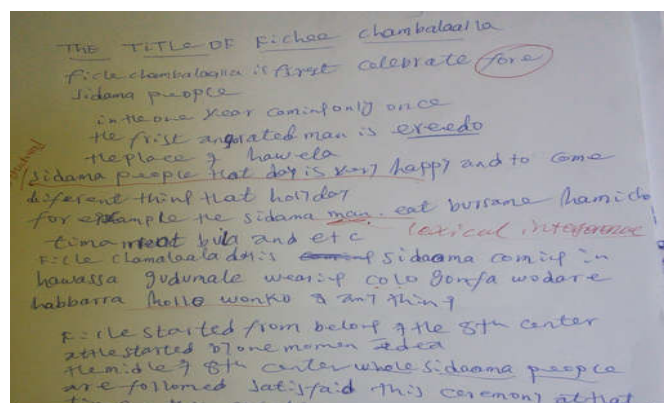 THE TITLE OF Fichee chambalaalla
ficle chambalaglla is first celebrate fore
sidama preopce
in the one year coming only once
the frist angrated man is erecdo
the place of hawela
sidama people that day is very happy and to come
diferent thing that holiday
for example the sidama man. eat bursame hamicho
tima meat bula and etc lexical inteference
Ficle chamalaala day is sidaama coming in
hawassa gudumale wearing colo gonfa wodare
habbarra hollo wonko & any thing
Ficle started from belong of the 8th center
at the started by one momen idea
the midle of 8th center whole sidaama preopce
are followed satisfaid this ceremony at that